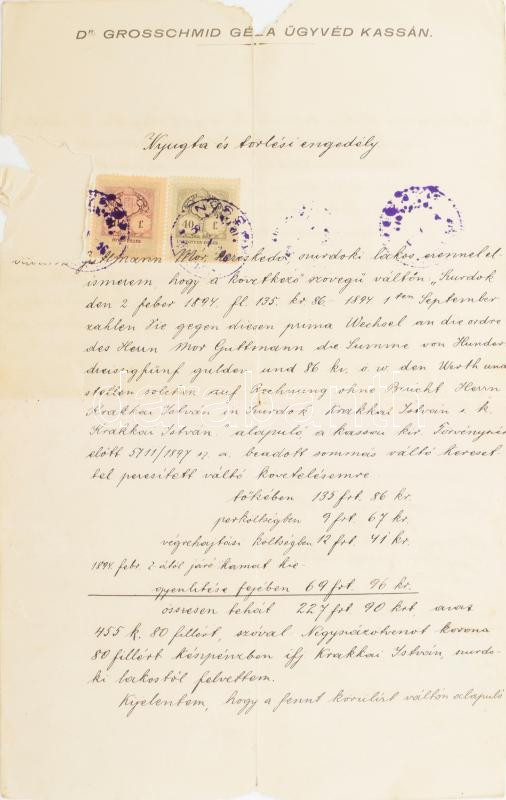 Dr. GROSSCHMID GÉZA ÜGYVÉD KASSÁN.
Nyugta és törlési engedély
Guttmann Mór, kereskedő szurdoki lakos, ezennel el-
ismerem, hogy a következő szövegű váltón: „Szurdok
den 2 feber 1894. fl. 135. kr 86 - 1894 1ten September
zahlen Sie gegen diesen prima Wechsel an die ordre
des Herrn Mor Guttmann die Summe von Hundert
dreissigfünf gulden und 86 kr. ö. w. den Werth und
stellen solchen auf Rechnung ohne Bericht. Herrn
Krakkai István in Szurdok Krakkai István s. k.
Krakkai István." alapuló a kassai kir. Törvényszék
előtt 5711/1897 sz. a. beadott sommás váltó kereset-
tel peresített váltó követelésemre
tőkében 135 frt. 86 kr.
perköltségben 9 frt. 67 kr.
végrehajtási költségben 12 frt. 41 kr.
1894. febr. 2 ától járó kamat ki-
gyenlitése fejében 69 frt. 96 kr.
összesen tehát 227 frt 90 krt, azaz
455 k. 80 fillért, szóval Négyszázötvenöt korona
80 fillért készpénzben ifj Krakkai István, szurdo-
ki lakostól felvettem.
Kijelentem, hogy a fennt körülírt váltón alapuló